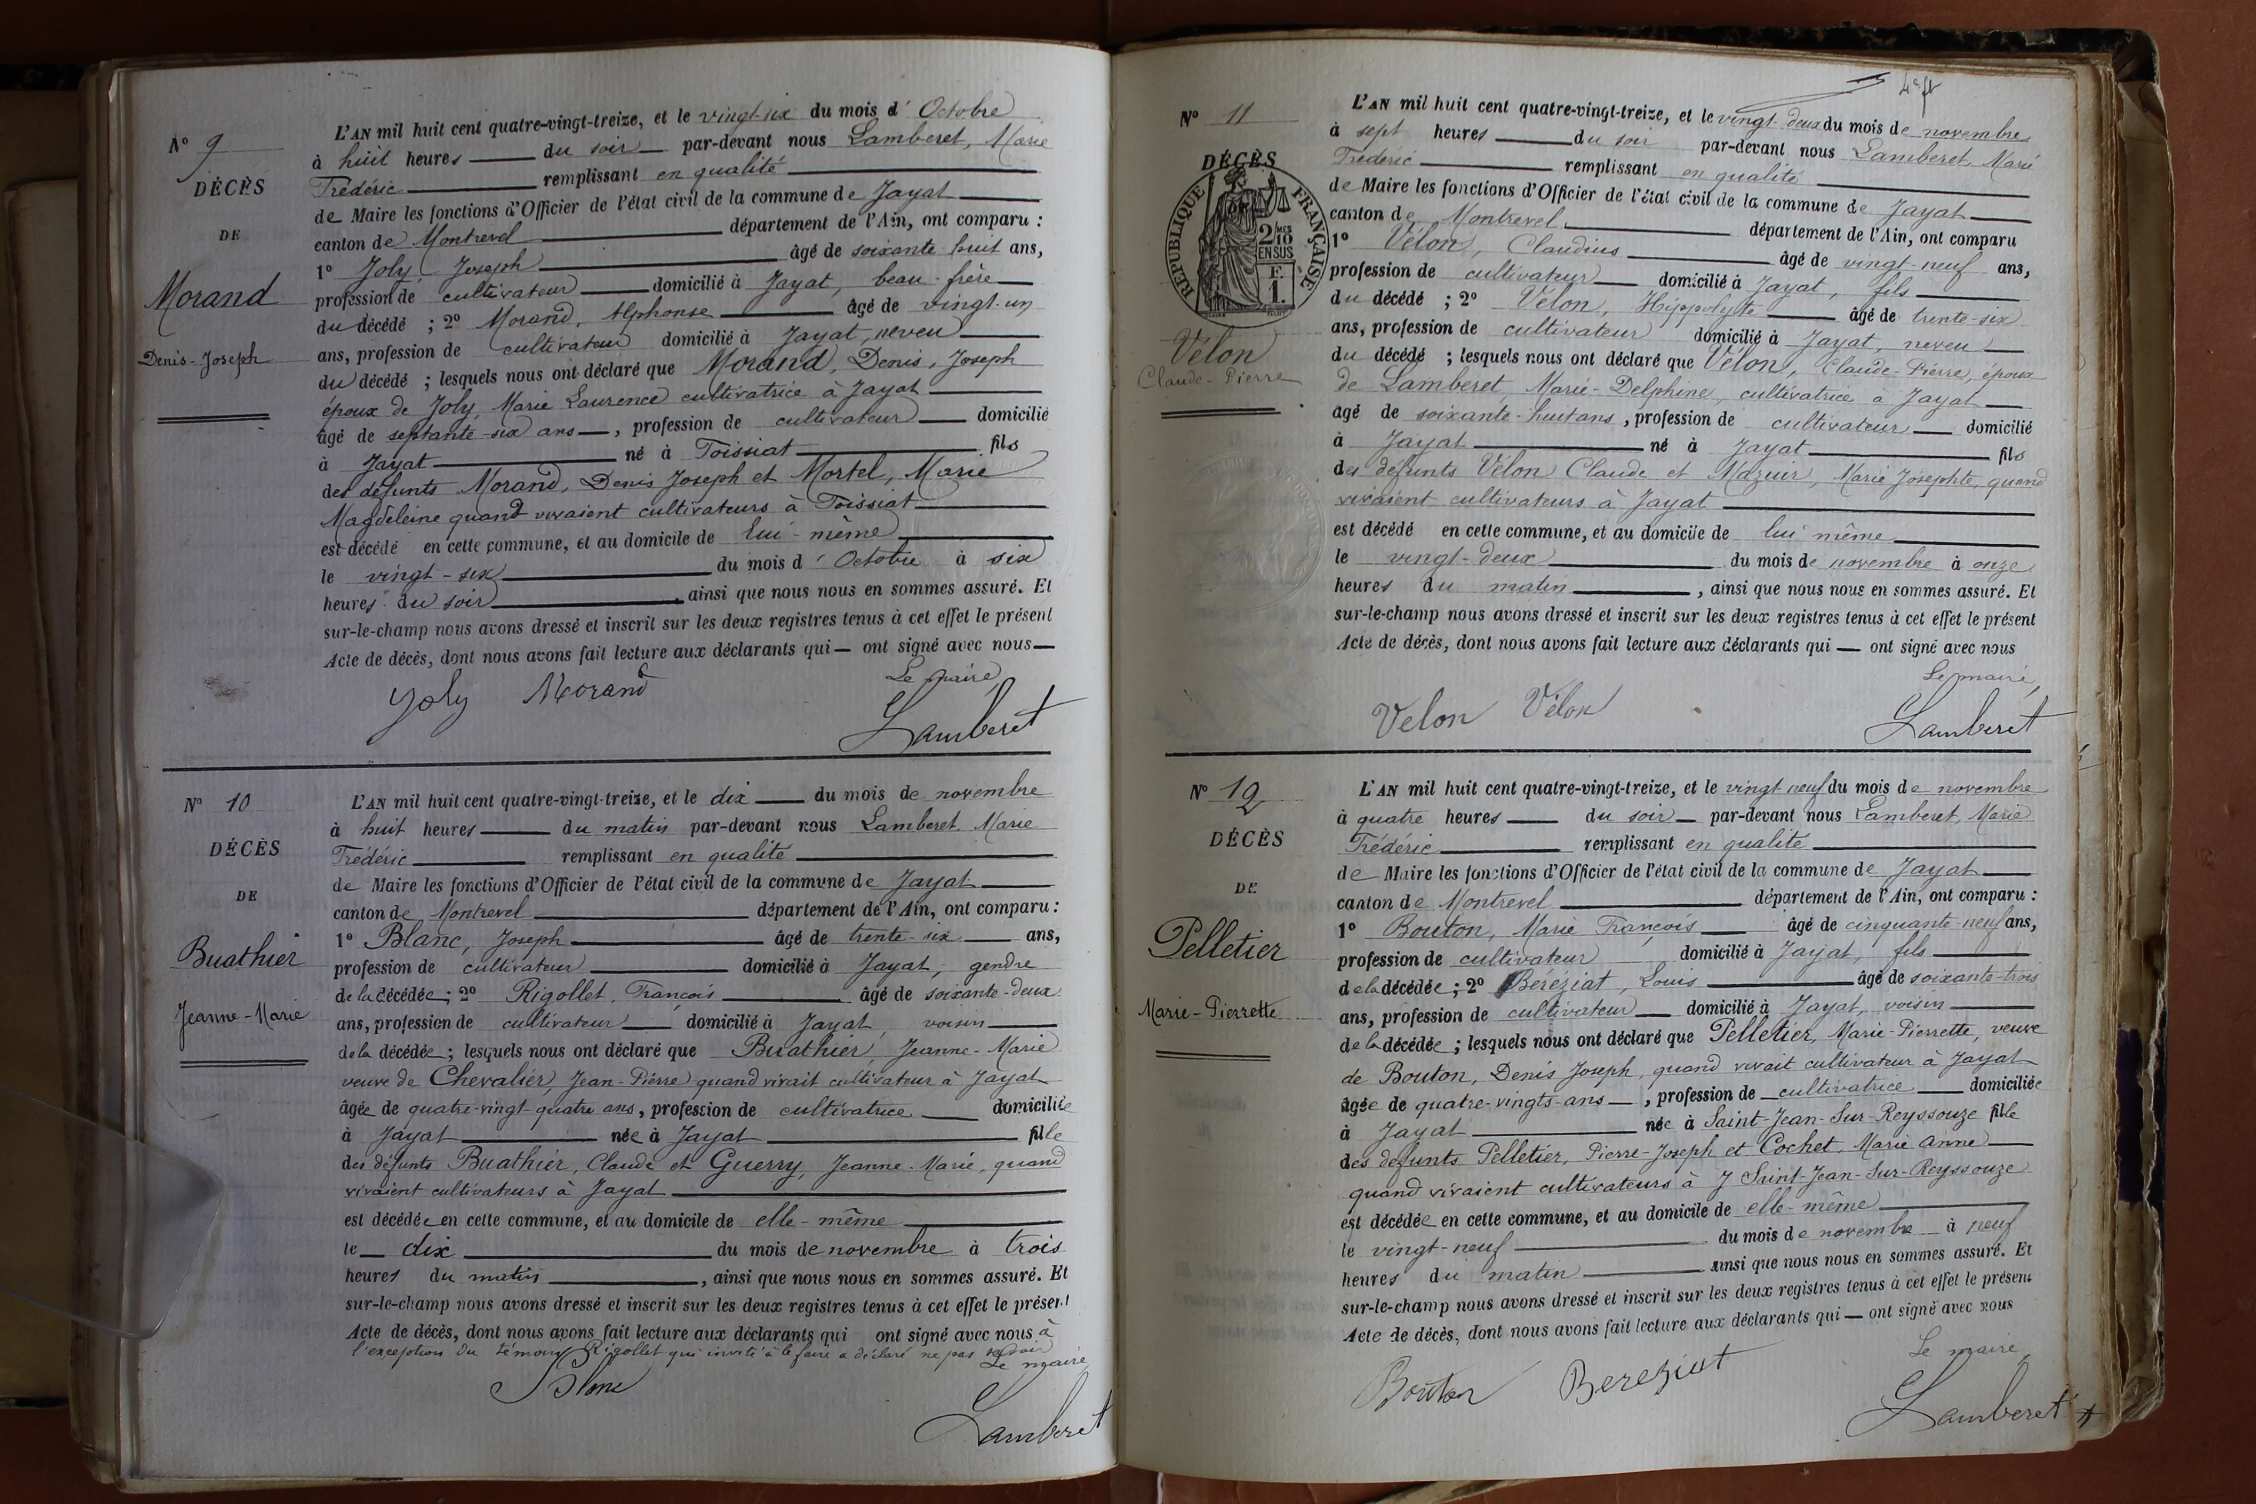 N° 9
DÉCÈS
DE
Morand
Denis-Joseph
L'AN mil huit cent quatre-vingt-treize, et le vingt-six du mois d' Octobre
à huit heures du soir par-devant nous Lamberet, Marie
Frédéric remplissant en qualité
de Maire les fonctions d'Officier de l'état civil de la commune de Jayat
canton de Montrevel département de l'Ain, ont comparu :
1° Joly Joseph âgé de soixante huit ans,
profession de cultivateur domicilié à Jayat, beau-frère
du décédé ; 2° Morand, Alphonse âgé de vingt-un
ans, profession de cultivateur domicilié à Jayat, neveu
du décédé ; lesquels nous ont déclaré que Morand, Denis, Joseph
époux de Joly, Marie Laurence cultivatrice à Jayat
âgé de septante-six ans, profession de cultivateur domicilié
à Jayat né à Foissiat fils
des défunts Morand, Denis Joseph et Mortel, Marie
Magdeleine quand vivaient cultivateurs à Foissiat
est décédé en cette commune, et au domicile de lui-même
le vingt-six du mois d' Octobre à six
heures du soir, ainsi que nous nous en sommes assuré. Et
sur-le-champ nous avons dressé et inscrit sur les deux registres tenus à cet effet le présent
Acte de décès, dont nous avons fait lecture aux déclarants qui ont signé avec nous
Le maire,
Joly Morand
Lamberet
N° 10
DÉCÈS
DE
Buathier
Jeanne-Marie
L'AN mil huit cent quatre-vingt-treize, et le dix du mois de novembre
à huit heures du matin par-devant nous Lamberet Marie
Frédéric remplissant en qualité
de Maire les fonctions d'Officier de l'état civil de la commune de Jayat
canton de Montrevel département de l'Ain, ont comparu :
1° Blanc, Joseph âgé de trente-six ans,
profession de cultivateur domicilié à Jayat, gendre
de la décédée ; 2° Rigollet, François âgé de soixante-deux
ans, profession de cultivateur domicilié à Jayat, voisin
de la décédée ; lesquels nous ont déclaré que Buathier, Jeanne-Marie
veuve de Chevalier, Jean-Pierre quand vivait cultivateur à Jayat
âgée de quatre-vingt-quatre ans, profession de cultivatrice domiciliée
à Jayat née à Jayat fille
des défunts Buathier, Claude et Guerry, Jeanne-Marie, quand
vivaient cultivateurs à Jayat
est décédée en cette commune, et au domicile de elle-même
le dix du mois de novembre à trois
heures du matin, ainsi que nous nous en sommes assuré. Et
sur-le-champ nous avons dressé et inscrit sur les deux registres tenus à cet effet le présent
Acte de décès, dont nous avons fait lecture aux déclarants qui ont signé avec nous à
l'exception du témoin Rigollet qui invité à le faire a déclaré ne pas savoir
Le maire
Blanc
Lamberet
N° 11
DÉCÈS
RÉPUBLIQUE FRANÇAISE
2/10 MES
EN SUS
F.
1.
Vélon
Claude-Pierre
L'AN mil huit cent quatre-vingt-treize, et le vingt-deux du mois de novembre
à sept heures du soir par-devant nous Lamberet Marie
Frédéric remplissant en qualité
de Maire les fonctions d'Officier de l'état civil de la commune de Jayat
canton de Montrevel département de l'Ain, ont comparu
1° Vélon, Claudius âgé de vingt-neuf ans,
profession de cultivateur domicilié à Jayat, fils
du décédé ; 2° Vélon, Hippolyte âgé de trente-six
ans, profession de cultivateur domicilié à Jayat, neveu
du décédé ; lesquels nous ont déclaré que Vélon, Claude-Pierre, époux
de Lamberet, Marie-Delphine, cultivatrice à Jayat
âgé de soixante-huit ans, profession de cultivateur domicilié
à Jayat né à Jayat fils
des défunts Vélon Claude et Mazuir, Marie Josephte, quand
vivaient cultivateurs à Jayat
est décédé en cette commune, et au domicile de lui même
le vingt-deux du mois de novembre à onze
heures du matin, ainsi que nous nous en sommes assuré. Et
sur-le-champ nous avons dressé et inscrit sur les deux registres tenus à cet effet le présent
Acte de décès, dont nous avons fait lecture aux déclarants qui ont signé avec nous
Le maire,
Velon Vélon
Lamberet
N° 12
DÉCÈS
DE
Pelletier
Marie-Pierrette
L'AN mil huit cent quatre-vingt-treize, et le vingt neuf du mois de novembre
à quatre heures du soir par-devant nous Lamberet, Marie
Frédéric remplissant en qualité
de Maire les fonctions d'Officier de l'état civil de la commune de Jayat
canton de Montrevel département de l'Ain, ont comparu :
1° Bouton, Marie François âgé de cinquante-neuf ans,
profession de cultivateur domicilié à Jayat, fils
de la décédée ; 2° Béréziat, Louis âgé de soixante-trois
ans, profession de cultivateur domicilié à Jayat, voisin
de la décédée ; lesquels nous ont déclaré que Pelletier, Marie-Pierrette, veuve
de Bouton, Denis Joseph, quand vivait cultivateur à Jayat
âgée de quatre-vingts-ans, profession de cultivatrice domiciliée
à Jayat née à Saint-Jean-Sur-Reyssouze fille
des défunts Pelletier, Pierre-Joseph et Cochet, Marie Anne
quand vivaient cultivateurs à J Saint-Jean-Sur-Reyssouze
est décédée en cette commune, et au domicile de elle-même
le vingt-neuf du mois de novembre à neuf
heures du matin ainsi que nous nous en sommes assuré. Et
sur-le-champ nous avons dressé et inscrit sur les deux registres tenus à cet effet le présent
Acte de décès, dont nous avons fait lecture aux déclarants qui ont signé avec nous
Le maire,
Bouton Bereziat
Lamberet